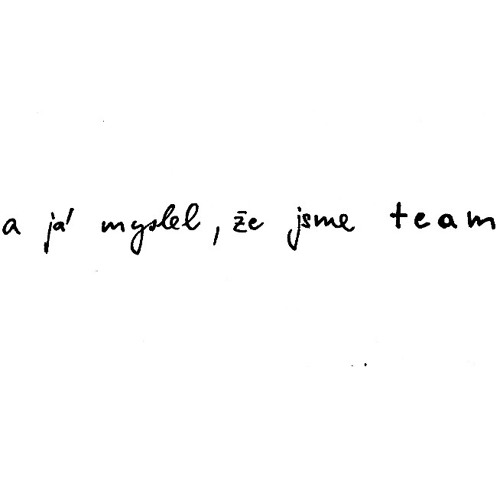 a já myslel, že jsme team